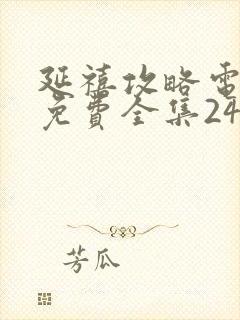 延禧攻略電
免費全集24
芳瓜